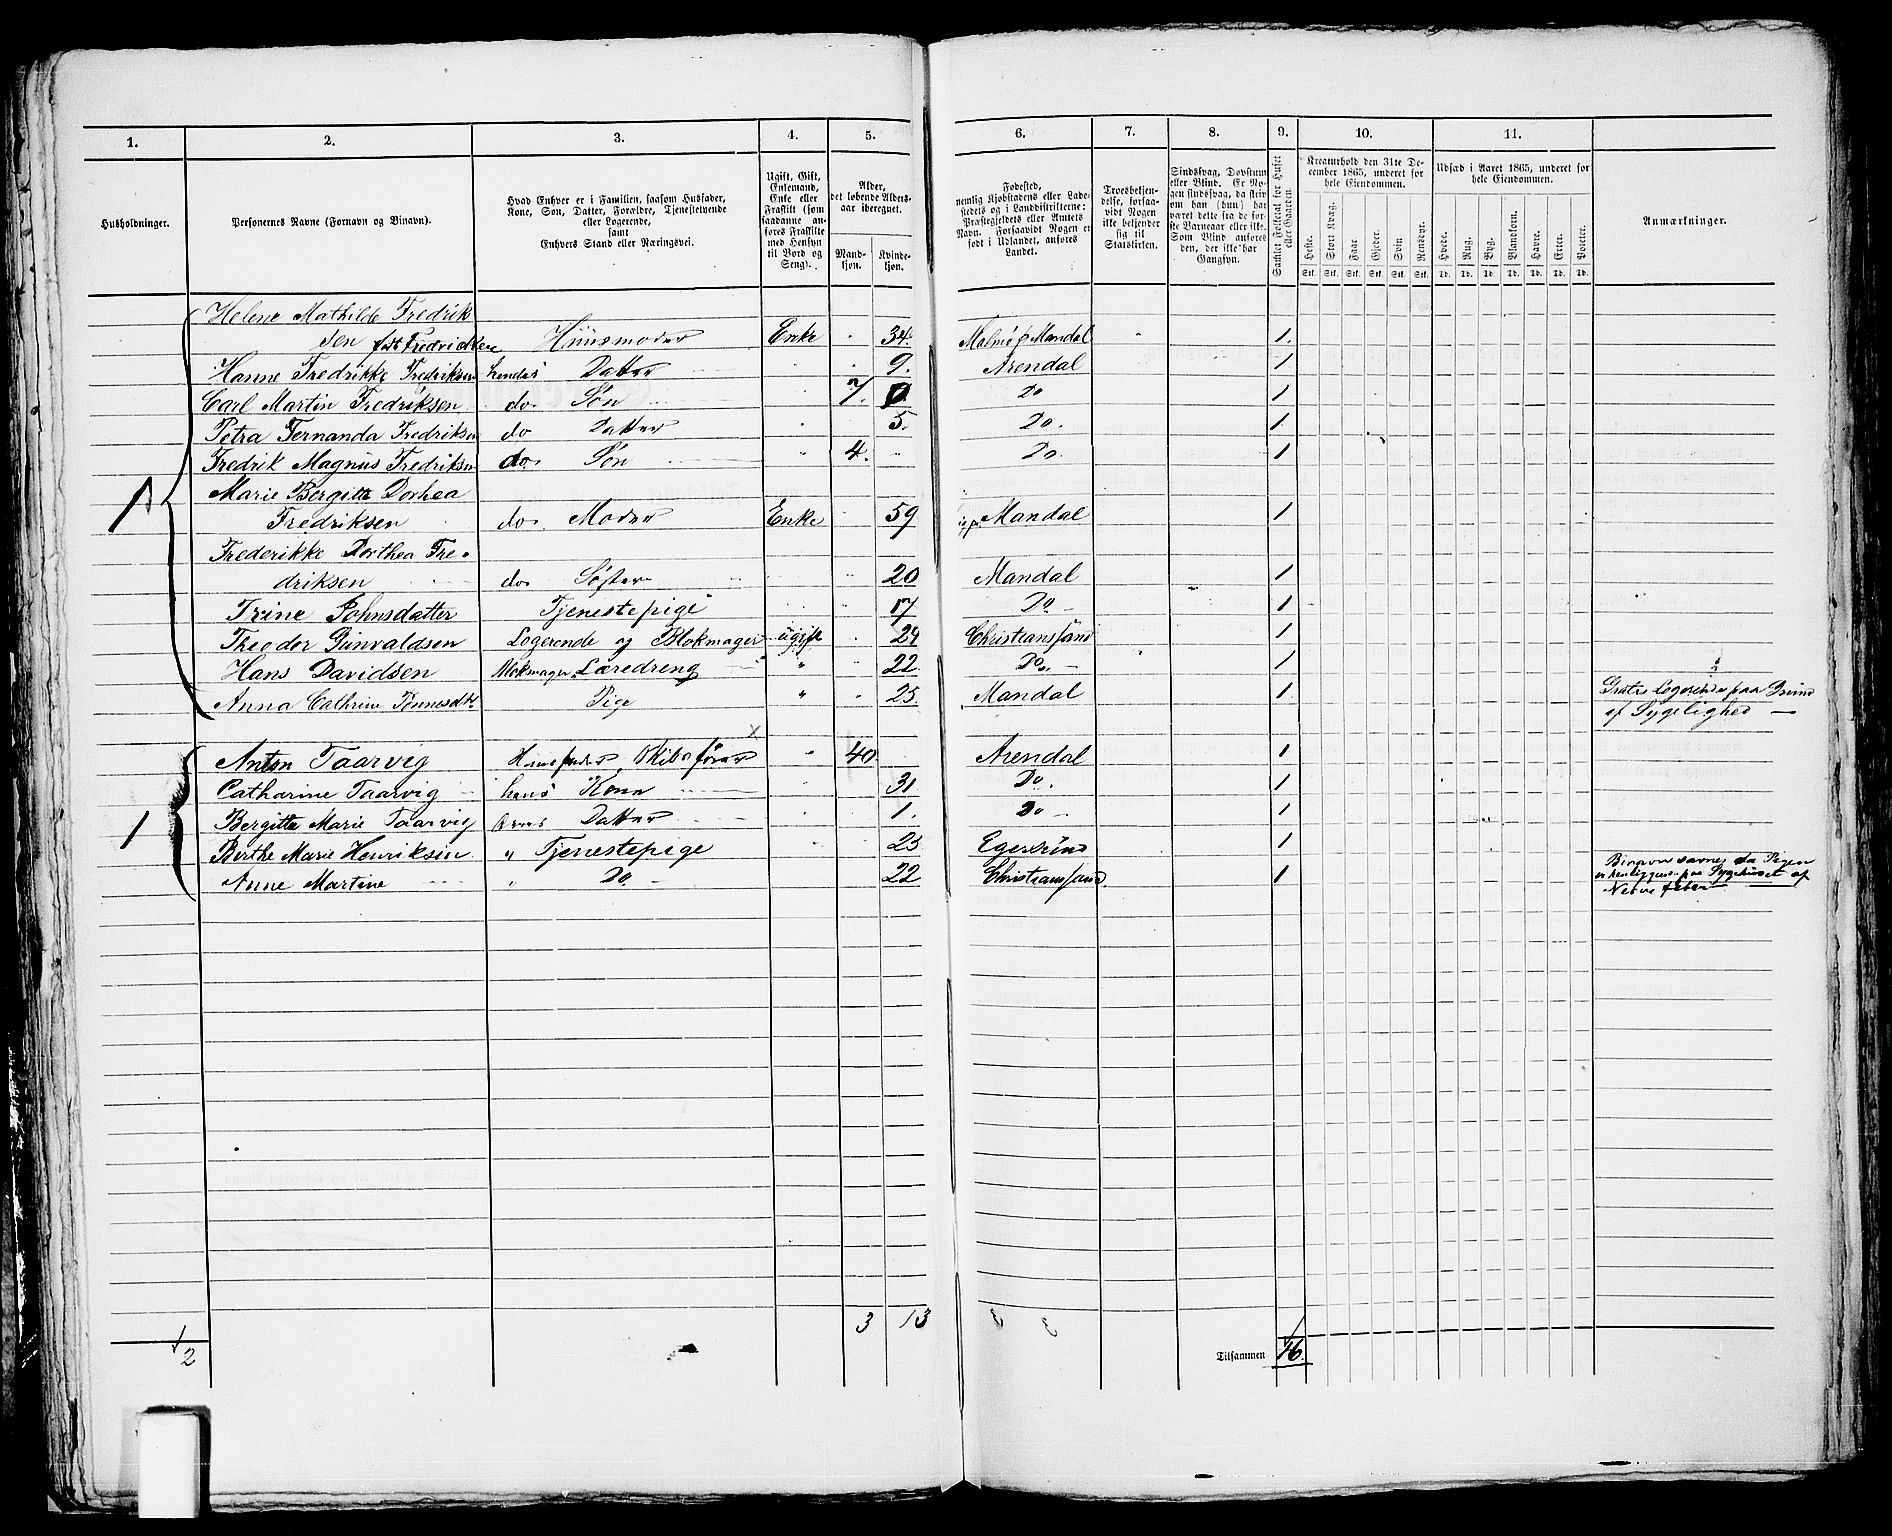 1. 2. 3. 4. 5. 6. 7. 8. 9. 10. 11.
Husholdninger.
Personernes Navne (Fornavn og Binavn).
Hvad Enhver er i Familien, saasom Husfader,
Kone, Søn, Datter, Forældre, Tjenestetyende
eller Logerende,
samt
Enhvers Stand eller Næringsvei.
Ugift, Gift,
Enkemand,
Enke eller
Fraskilt (som
saadanne an-
føres Fraskilte
med Hensyn
til Bord og
Seng).
Alder,
det løbende Alders-
aar iberegnet.
Mand-
kjøn.
Kvinde-
kjøn.
Fødested,
nemlig Kjøbstadens eller Lade-
stedets og i Landdistrikterne:
Præstegjeldets eller Amtets
Navn. Forsaavidt Nogen er
født i Udlandet, anføres
Landet.
Troesbekjen-
delse, forsaa-
vidt Nogen
ikke bekjender
sig til
Statskirken.
Sindssvag, Døvstum
eller Blind. Er No-
gen sindssvag, da skriv
om han (hun) har
været dette fra de for-
ste Barneaar eller ikke.
Som Blind anføres
den, der ikke har
Gangsyn.
Samlet Folketal for Huset
eller Gaarden.
Kreaturhold den 31te De-
cember 1865, underet for
hele Eiendommen.
Heste. Stort Kvæg. Faar. Gjeder. Svin. Rensdyr.
Stk. Stk. Stk. Stk. Stk. Stk.
Udsæd i Aaret 1865, underet for
hele Eiendommen.
Hvede. Rug. Byg. Blandkorn. Havre. Erter. Poteter.
Td. Td. Td. Td. Td. Td. Td.
Anmærkninger.
Helene Mathilde Fredrik
sen født Fredriksen Huusmoder Enke 34. Malmø p Mandal 1.
Hanne Fredrikke Fredriksen hendes Datter 9. Arendal 1
Carl Martin Fredriksen do. Søn 7. Do 1
Petra Fernanda Fredriksen do Datter 5. Do. 1
Fredrik Magnus Fredriksen do. Søn 4. Do. 1
Marie Bergitte Dorhea
1 Fredriksen do. Moder Enke 59 Mandal 1
Frederikke Dorthea Fre-
driksen do Søster 20 Mandal 1
Trine Johnsdatter Tjenestepige 17 Do 1
Theodor Gunvaldsen Logerende og Blokmager ugift 24 Christianssand 1
Hans Davidsen Blokmager Læredreng " 22 Do. 1
Anna Cathrine Tønnesdtr Pige " 25. Mandal 1. Gratis Logerende paa Grund
af Sygelighed
Anton Taarvig Huusfader, Skibsfører 40 Arendal 1
Catharine Taarvig hans Kone 31 Do. 1
1 Bergitte Marie Taarvig Datter 1. Do 1
Berthe Marie Henriksen " Tjenestepige 25 Egersund 1
Anne Martine " Do. 22 Christianssand. 1 Binavn savnes da Pigen
er henliggende paa Sygehuset af
Nerve feber
3 13
2 Tilsammen 16.